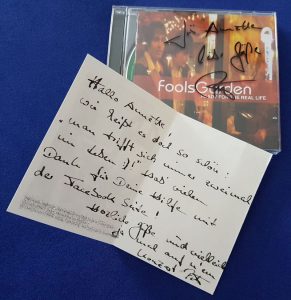 für Annette
liebe Grüße
foolsGarden
REAL LIFE
Hallo Annette!
wie heißt es doch so schön:
"man trifft sich immer zweimal
im Leben"! Hab vielen
Dank für Deine Hilfe mit
der Facebook Seite!
Herzliche Grüße und vielleicht
ja mal auf 'nem
Konzert